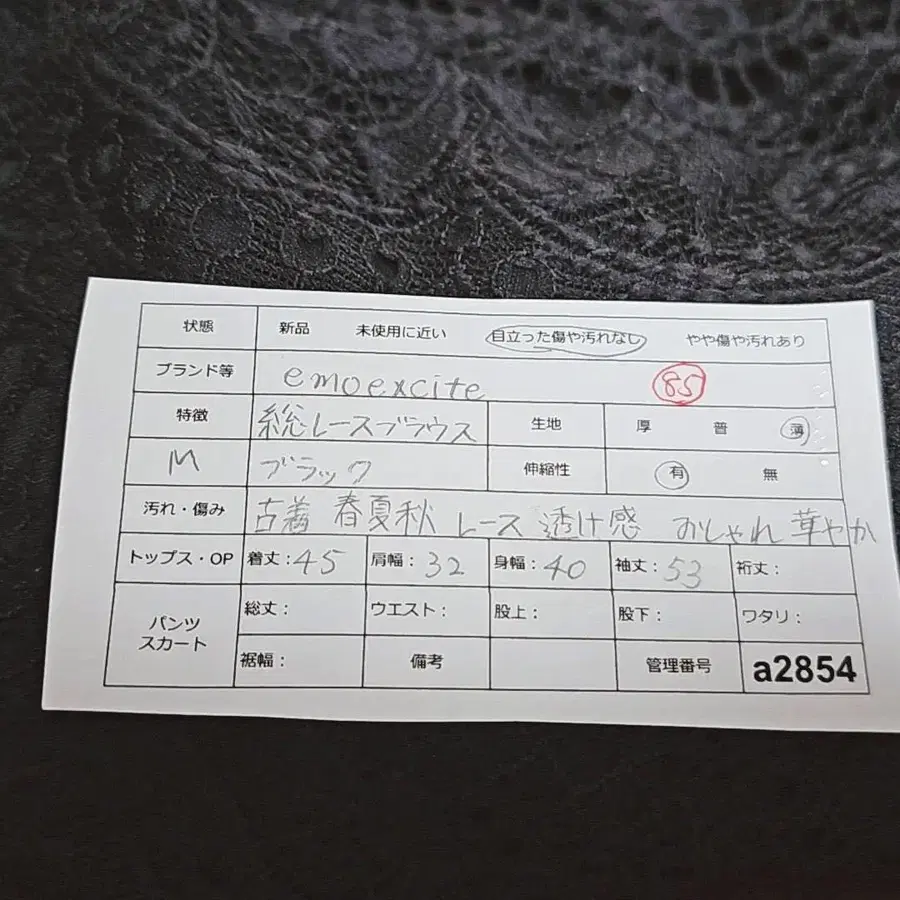 状態 新品 未使用に近い 目立った傷や汚れなし やや傷や汚れあり
ブランド等 emoexcite 85
特徴 総レースブラウス 生地 厚 普 薄
M ブラック 伸縮性 有 無
汚れ・傷み 古着 春夏秋 レース 透け感 おしゃれ 華やか
トップス・OP 着丈:45 肩幅:32 身幅:40 袖丈:53 裄丈:
パンツ スカート 総丈: ウエスト: 股上: 股下: ワタリ:
裾幅: 備考 管理番号 a2854